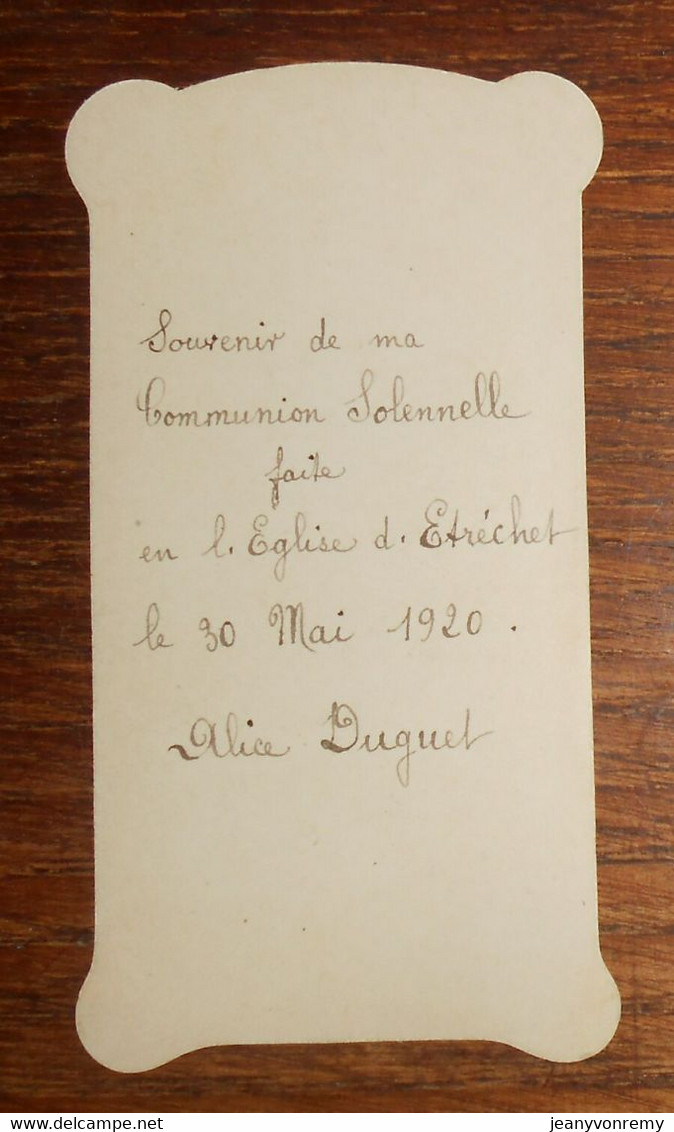 Souvenir de ma
Communion Solennelle
faite
en l. Eglise d. Etréchet
le 30 Mai 1920.
Alice Duguet
Delcampe.net
jeanyvonremy